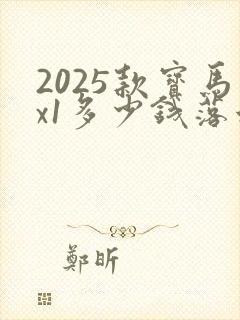 2025款寶馬
x1多少錢落
鄭昕